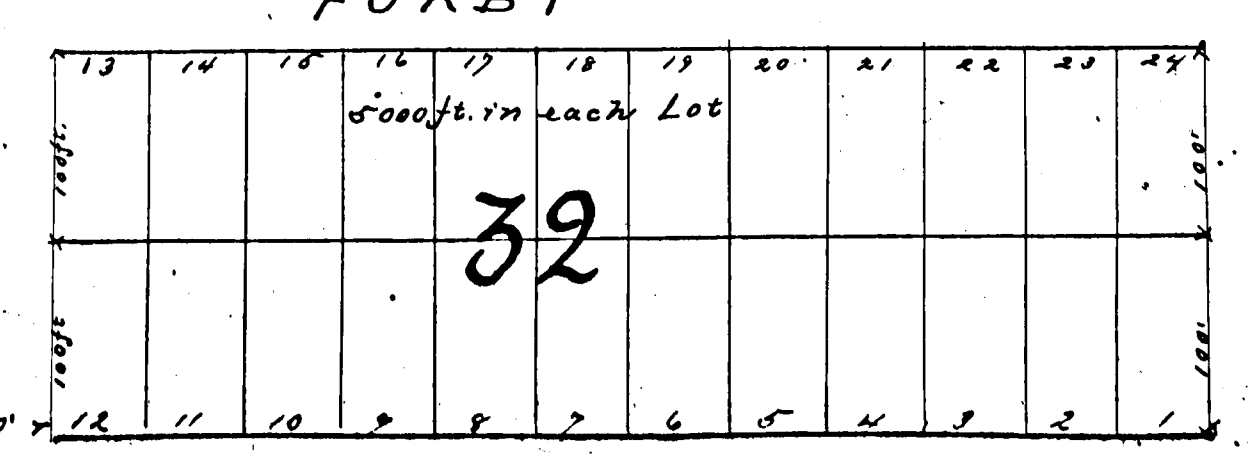 13 14 15 16 17 18 19 20 21 22 23 24
5000ft. in each Lot
100ft. 100'
32
100ft 100'
12 11 10 9 8 7 6 5 4 3 2 1